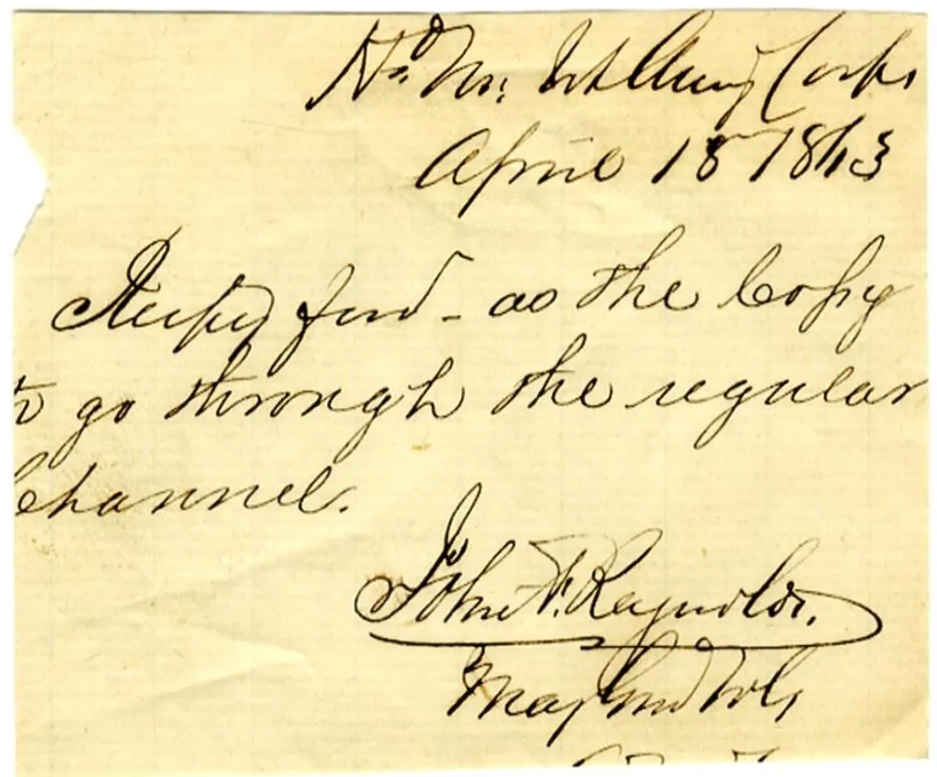 Hd. Qrs. 1st Army Corps
April 18 1863
Respy ford - as the copy
to go through the regular
Channel.
John F. Reynolds.
Maj Genl Vols